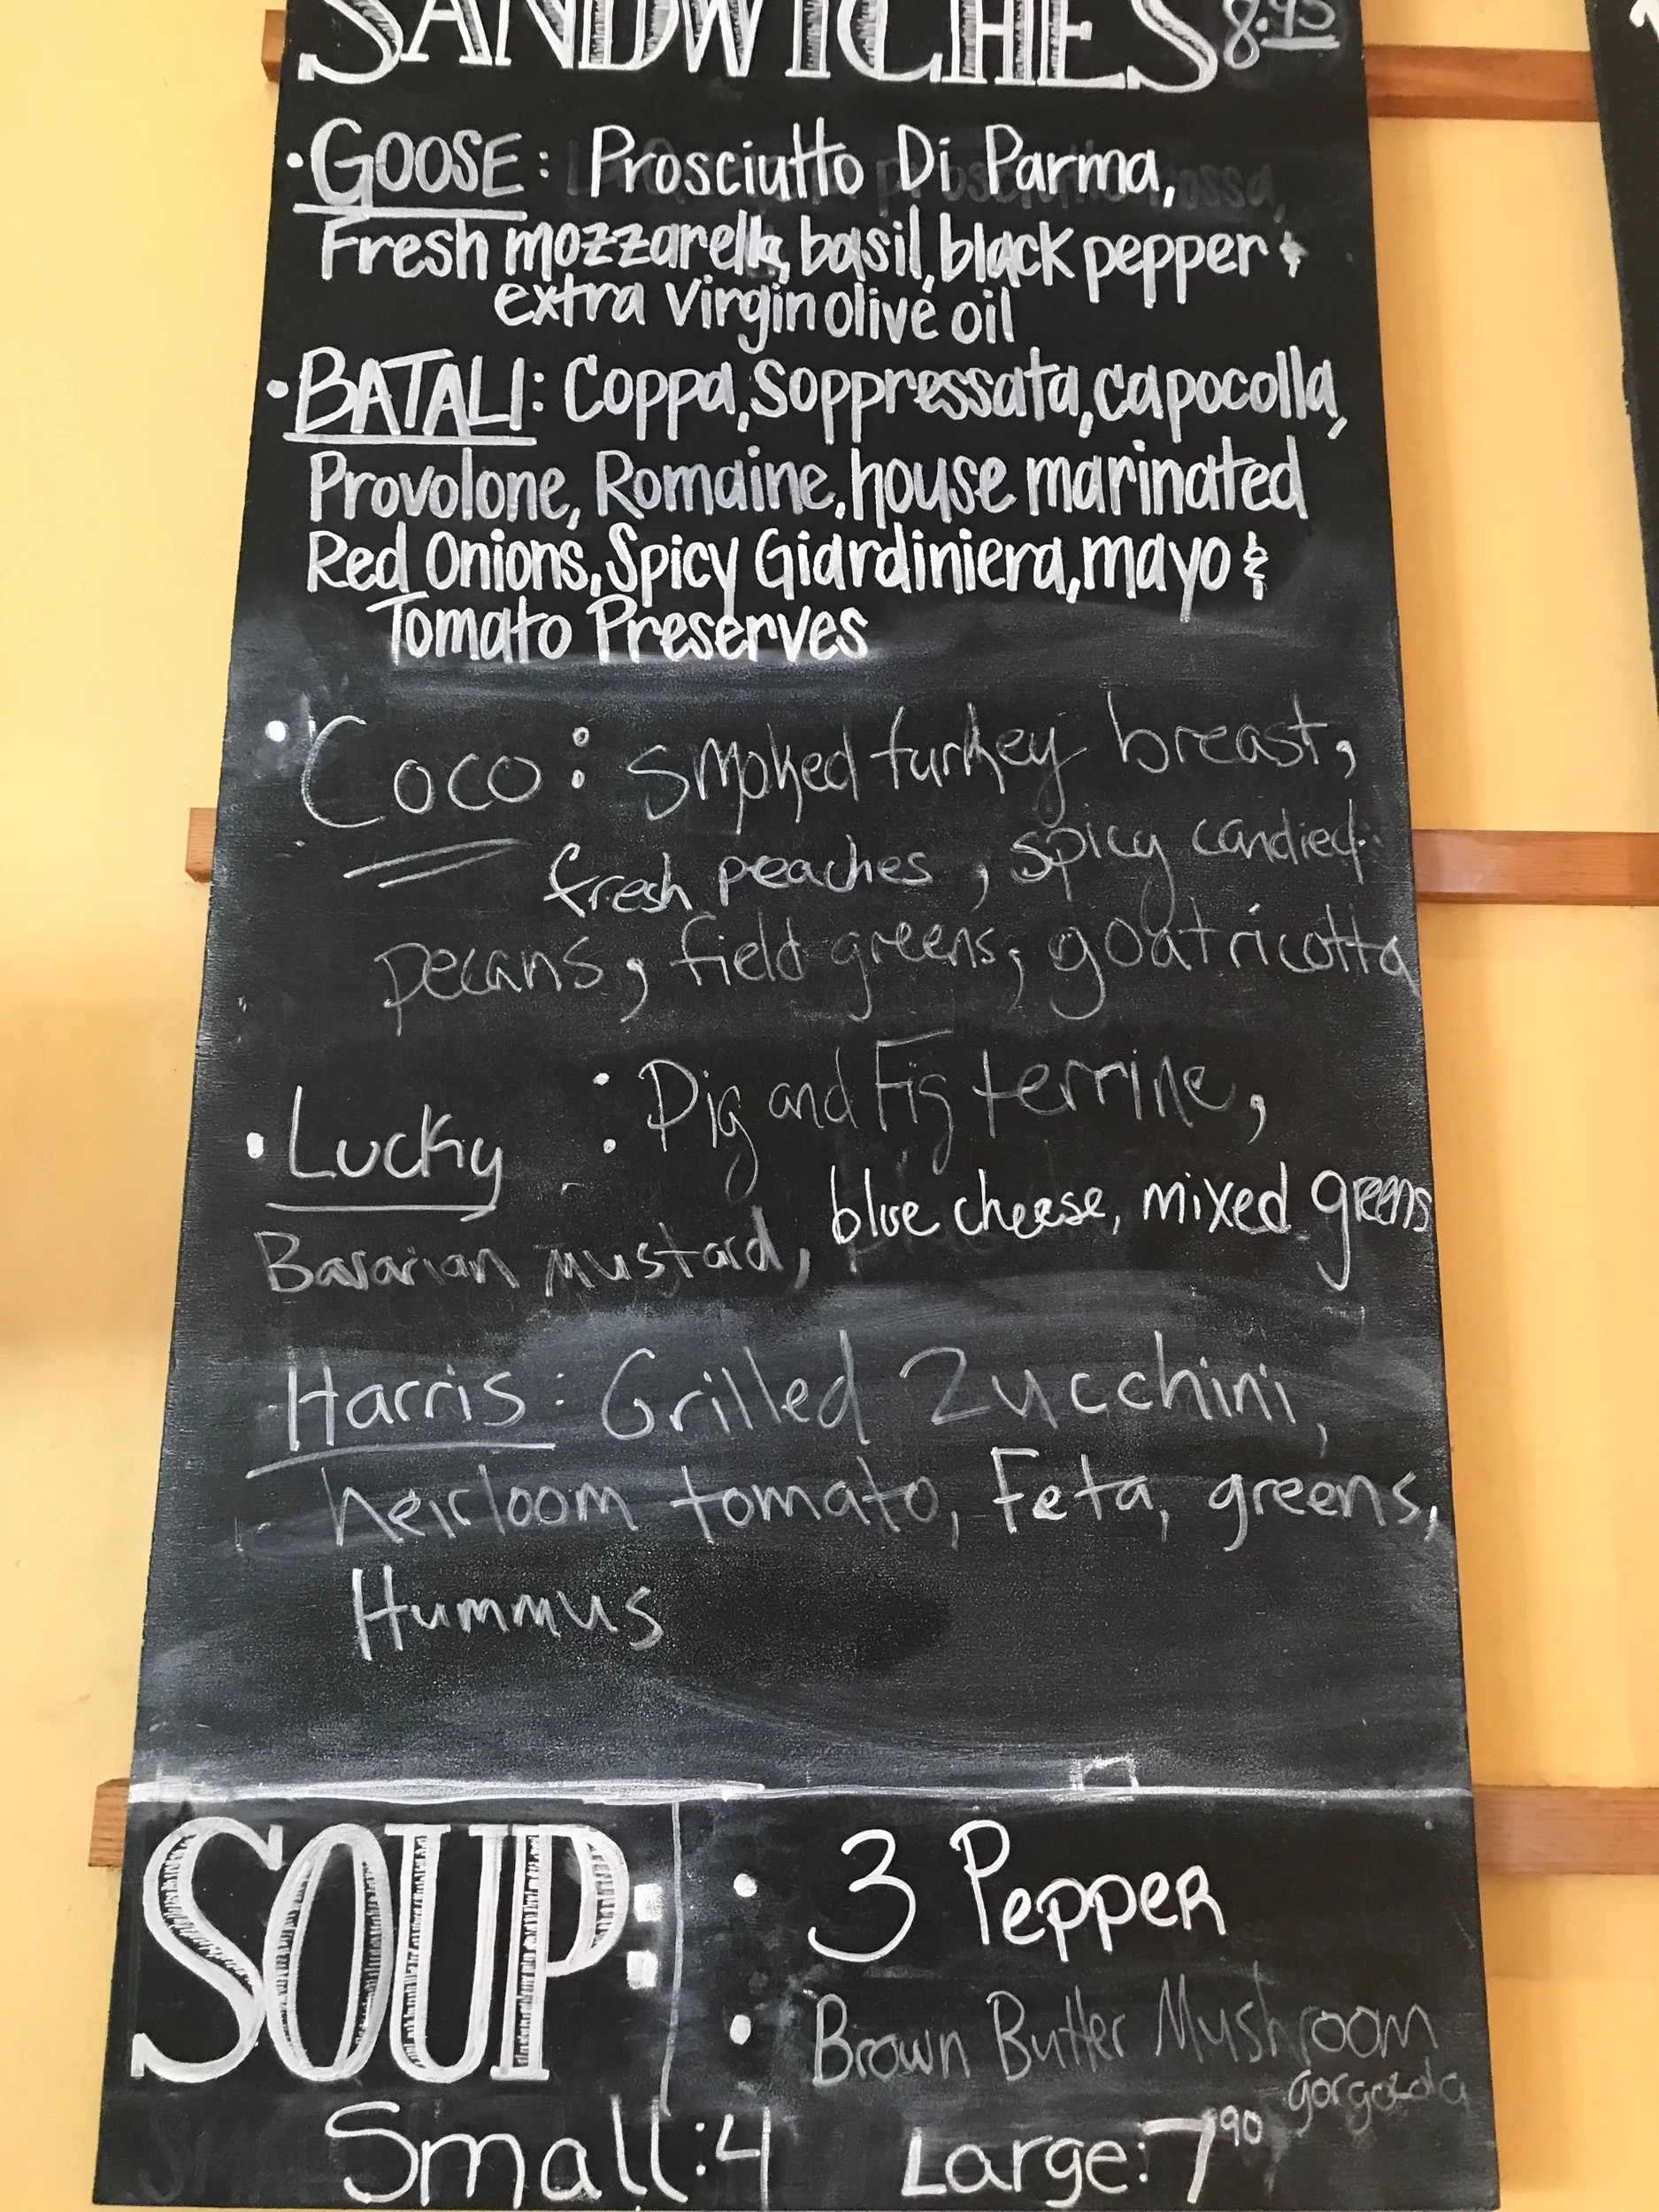 SANDWICHES 8.95
• GOOSE: Prosciutto Di Parma,
Fresh mozzarella, basil, black pepper &
extra virgin olive oil
• BATALI: Coppa, Soppressata, capocolla,
Provolone, Romaine, house marinated
Red Onions, Spicy Giardiniera, mayo &
Tomato Preserves
• Coco: smoked turkey breast,
fresh peaches, spicy candied
pecans, field greens, goat ricotta
• Lucky: Pig and Fig terrine,
Bavarian mustard, blue cheese, mixed greens
Harris: Grilled Zucchini,
heirloom tomato, Feta, greens,
Hummus
SOUP:
• 3 Pepper
• Brown Butter Mushroom
gorgozola
Small: 4 Large: 7.90